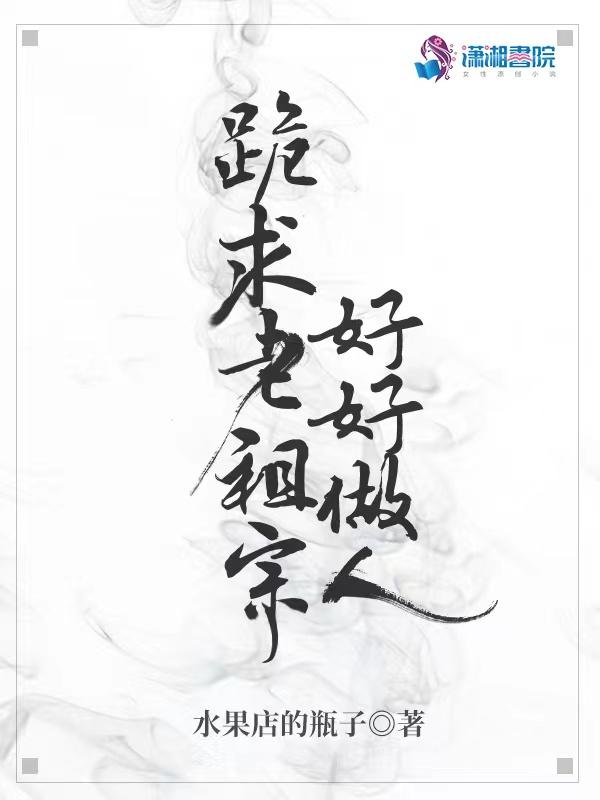 潇湘書院
女性原创小说
跪求老祖宗
好好做人
水果店的瓶子◎著